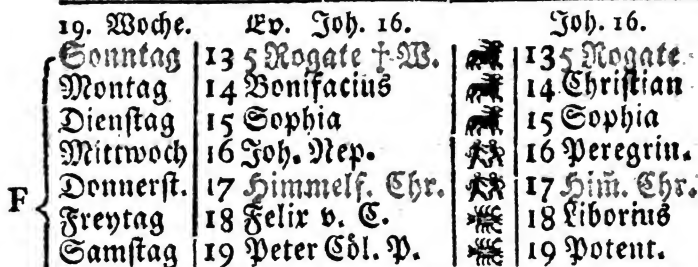 19. Woche. Ev. Joh. 16. Joh. 16.
Sonntag 13 5 Rogate †. W. 13 5 Rogate.
Montag 14 Bonifacius 14 Christian
Dienstag 15 Sophia 15 Sophia
Mittwoch 16 Joh. Nep. 16 Peregrin.
Donnerst. 17 Himmelf. Chr. 17 Him̃. Chr.
F Freytag 18 Felix v. C. 18 Liborius
Samstag 19 Peter Cöl. P. 19 Potent.